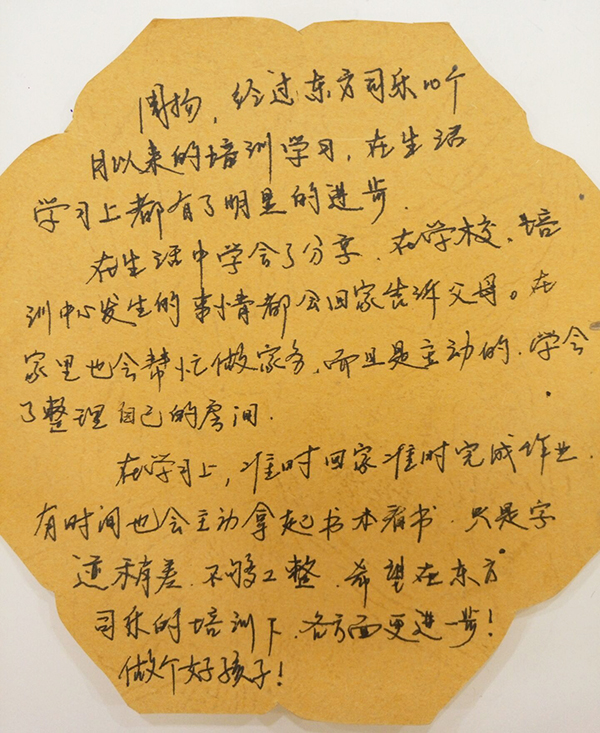 周扬，经过东方司乐10个
月以来的培训学习，在生活
学习上都有了明显的进步.
在生活中学会了分享，在学校、培
训中心发生的事情都会回家告诉父母。在
家里也会帮忙做家务，而且是主动的，学会
了整理自己的房间.
在学习上，准时回家准时完成作业.
有时间也会主动拿起书本看书，只是字
迹稍差，不够工整，希望在东方
司乐的培训下，各方面更进一步！
做个好孩子！